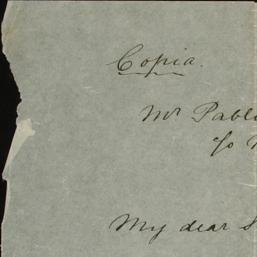 Copia.
Mr Pabl
c/o
My dear S